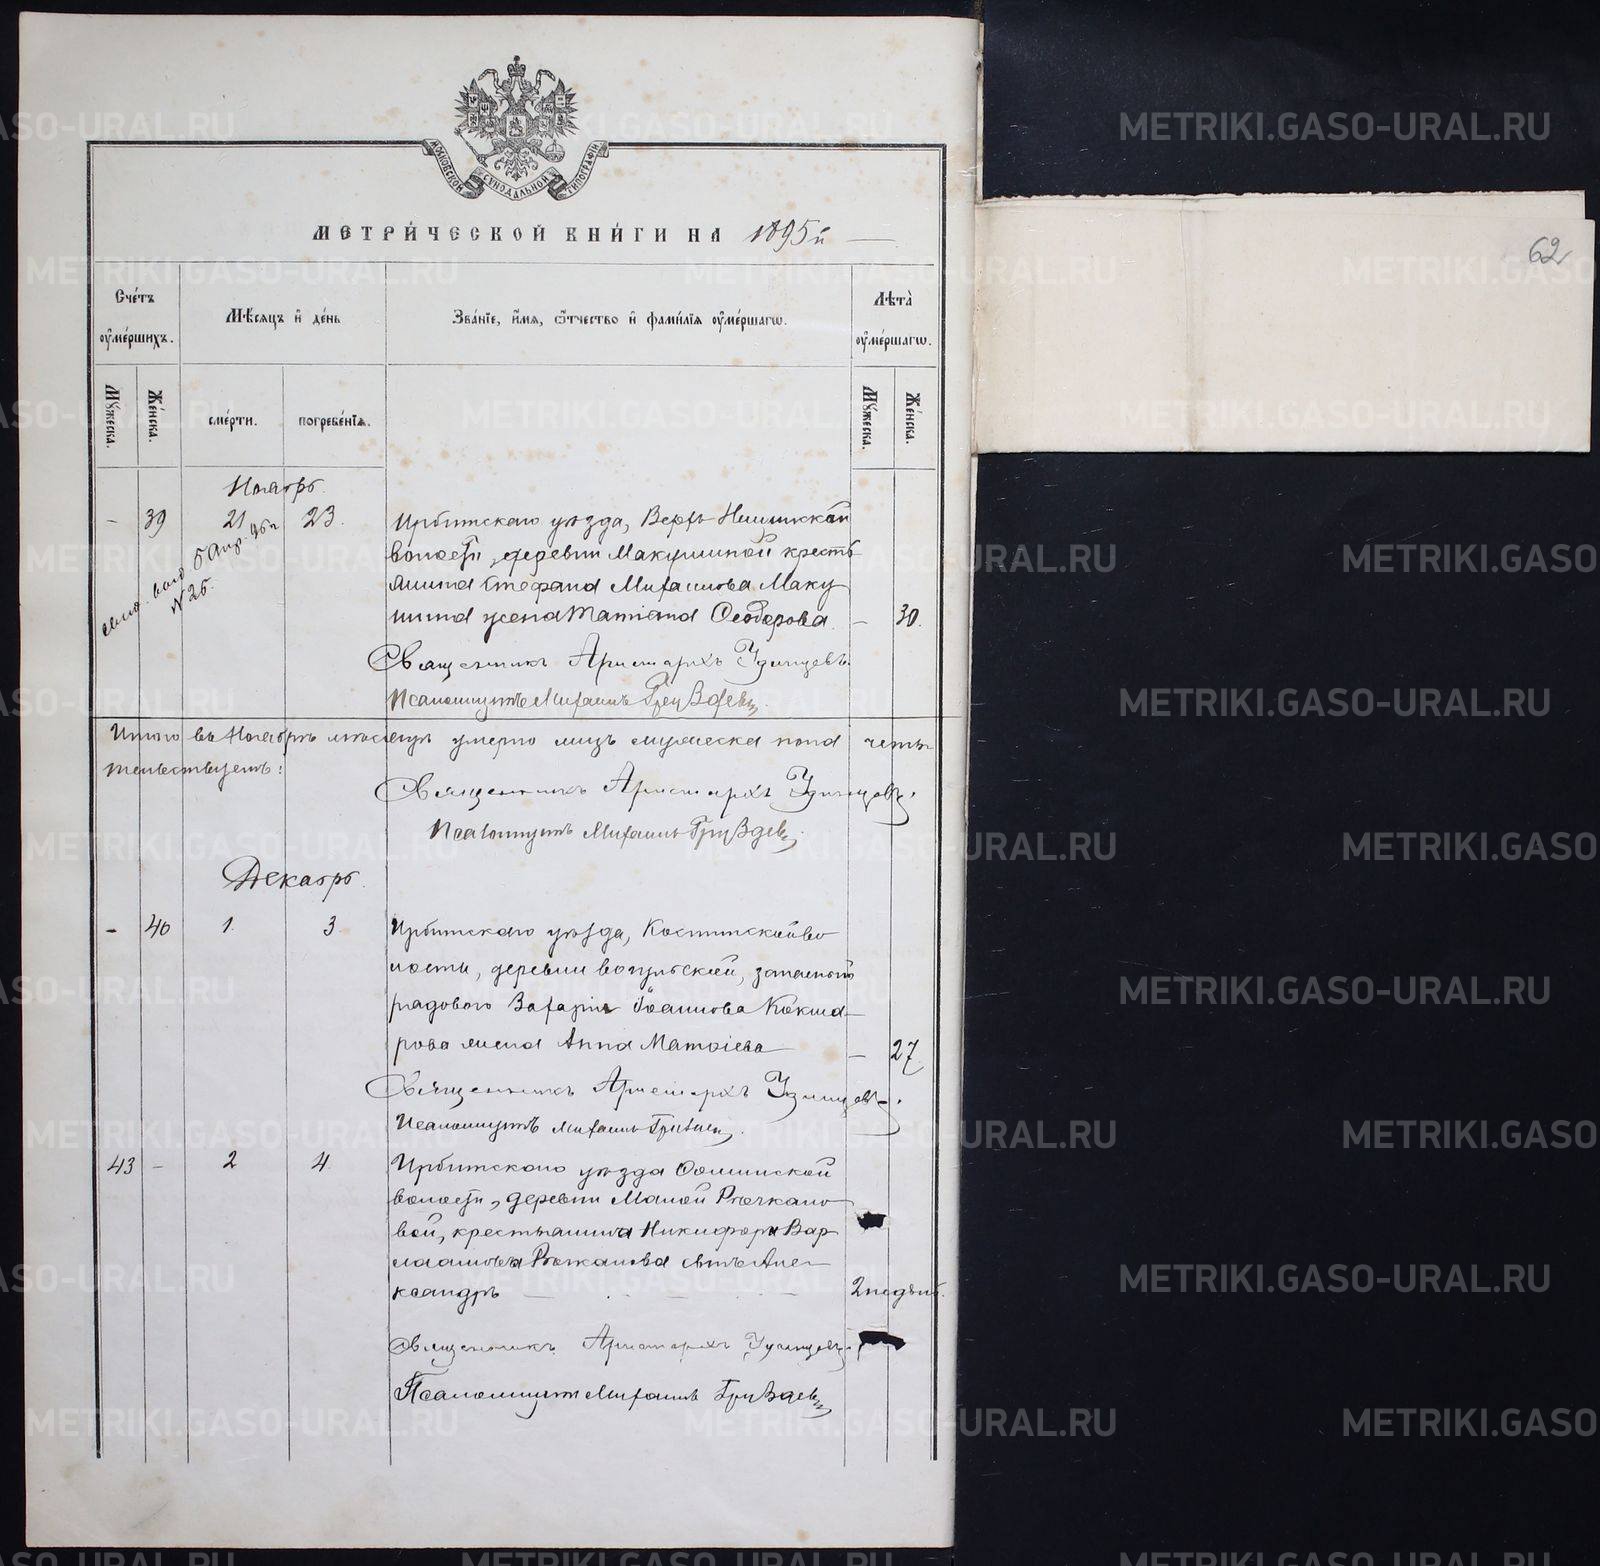 МОСКОВСКОЙ СУНОДАЛЬНОЙ ТИПОГРАФІИ
МЕТРИ́ЧЕСКОЙ КНИ́ГИ НА 1895й
62
Сче́тъ оу҆ме́ршихъ.
Мѣ́сяцъ и҆ де́нь
Зва́нїе, и҆́мя, ѻ҆́тчество и҆ фами́лїя оу҆ме́ршагѡ.
Лѣта̀ оу҆ме́ршагѡ.
Мꙋ́жеска.
Же́нска.
сме́рти.
погребе́нїѧ.
Мꙋ́жеска.
Же́нска.
Ноябрь.
– 39 21 23. Ирбитскаго уѣзда, Верхъ Ницинской
волости, деревни Макушиной кресть
янина Стефана Михаилова Маку
шина жена Татіана Ѳеодорова. – 30.
5 Апр. 96 г.
№ 26.
Священникъ Аристархъ Удинцевъ.
Псаломщикъ Михаилъ Груздевъ.
Итого въ Ноябрѣ мѣсяцѣ умерло лицъ мужеска пола четы
Священникъ Аристархъ Удинцевъ.
Псаломщикъ Михаилъ Груздевъ.
Декабрь.
– 40 1. 3. Ирбитскаго уѣзда, Костинской во
лости, деревни Вогульской, запаснаго
рядового Захаріи Іоаннова Кокша–
рова жена Анна Матѳіева – 27.
Священникъ Аристархъ Удинцевъ.
Псаломщикъ Михаилъ Груздевъ.
43 – 2 4. Ирбитскаго уѣзда
волости, деревни Малой Рѣчкало
вой, крестьянина Никифора Вар
лаамова Рѣчкалова сынъ Але–
ксандръ 2 недѣл.
Священникъ Аристархъ Удинцевъ.
Псаломщикъ Михаилъ Груздевъ
METRIKI.GASO-URAL.RU